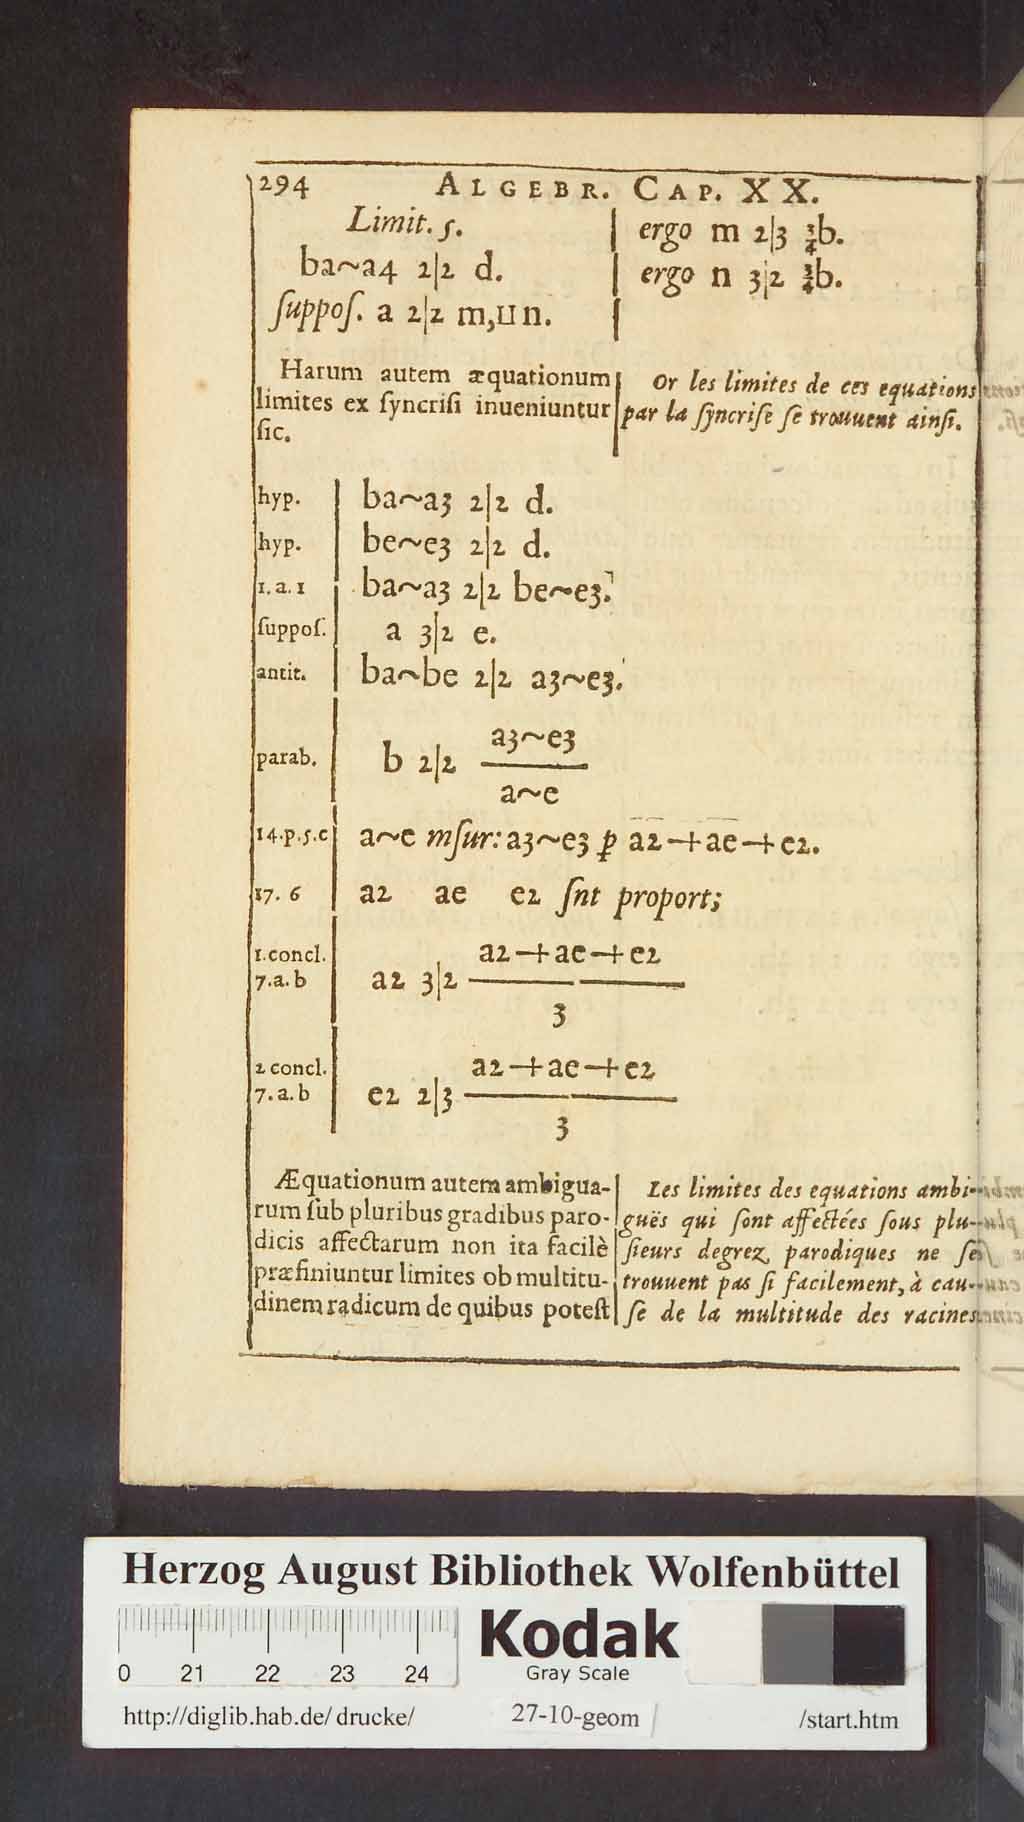 294 ALGEBR. CAP. XX.
Limit. 5.
ba~a4 2|2 d.
ſuppoſ. a 2|2 m, II n.
ergo m 2|3 ¾b.
ergo n 3|2 ¾b.
Harum autem æquationum
limites ex ſyncriſi inueniuntur
ſic.
Or les limites de ces equations
par la ſyncriſe ſe trouuent ainſi.
hyp. ba~a3 2|2 d.
hyp. be~e3 2|2 d.
1. a. 1 ba~a3 2|2 be~e3.
ſuppoſ. a 3|2 e.
antit. ba~be 2|2 a3~e3.
a3~e3
parab. b 2|2
a~e
14.p.5.c a~e mſur: a3~e3 p a2+ae+e2.
17. 6 a2 ae e2 ſnt proport;
1.concl. a2+ae+e2
7.a.b a2 3|2
3
2 concl. a2+ae+e2
7.a.b e2 2|3
3
Æquationum autem ambigua-
rum ſub pluribus gradibus paro-
dicis affectarum non ita facilè
præfiniuntur limites ob multitu-
dinem radicum de quibus poteſt
Les limites des equations ambi-
guës qui ſont affectées ſous plu-
ſieurs degrez parodiques ne ſe
trouuent pas ſi facilement, à cau-
ſe de la multitude des racines
Herzog August Bibliothek Wolfenbüttel
Kodak
Gray Scale
0 21 22 23 24
http://diglib.hab.de/drucke/ 27-10-geom /start.htm